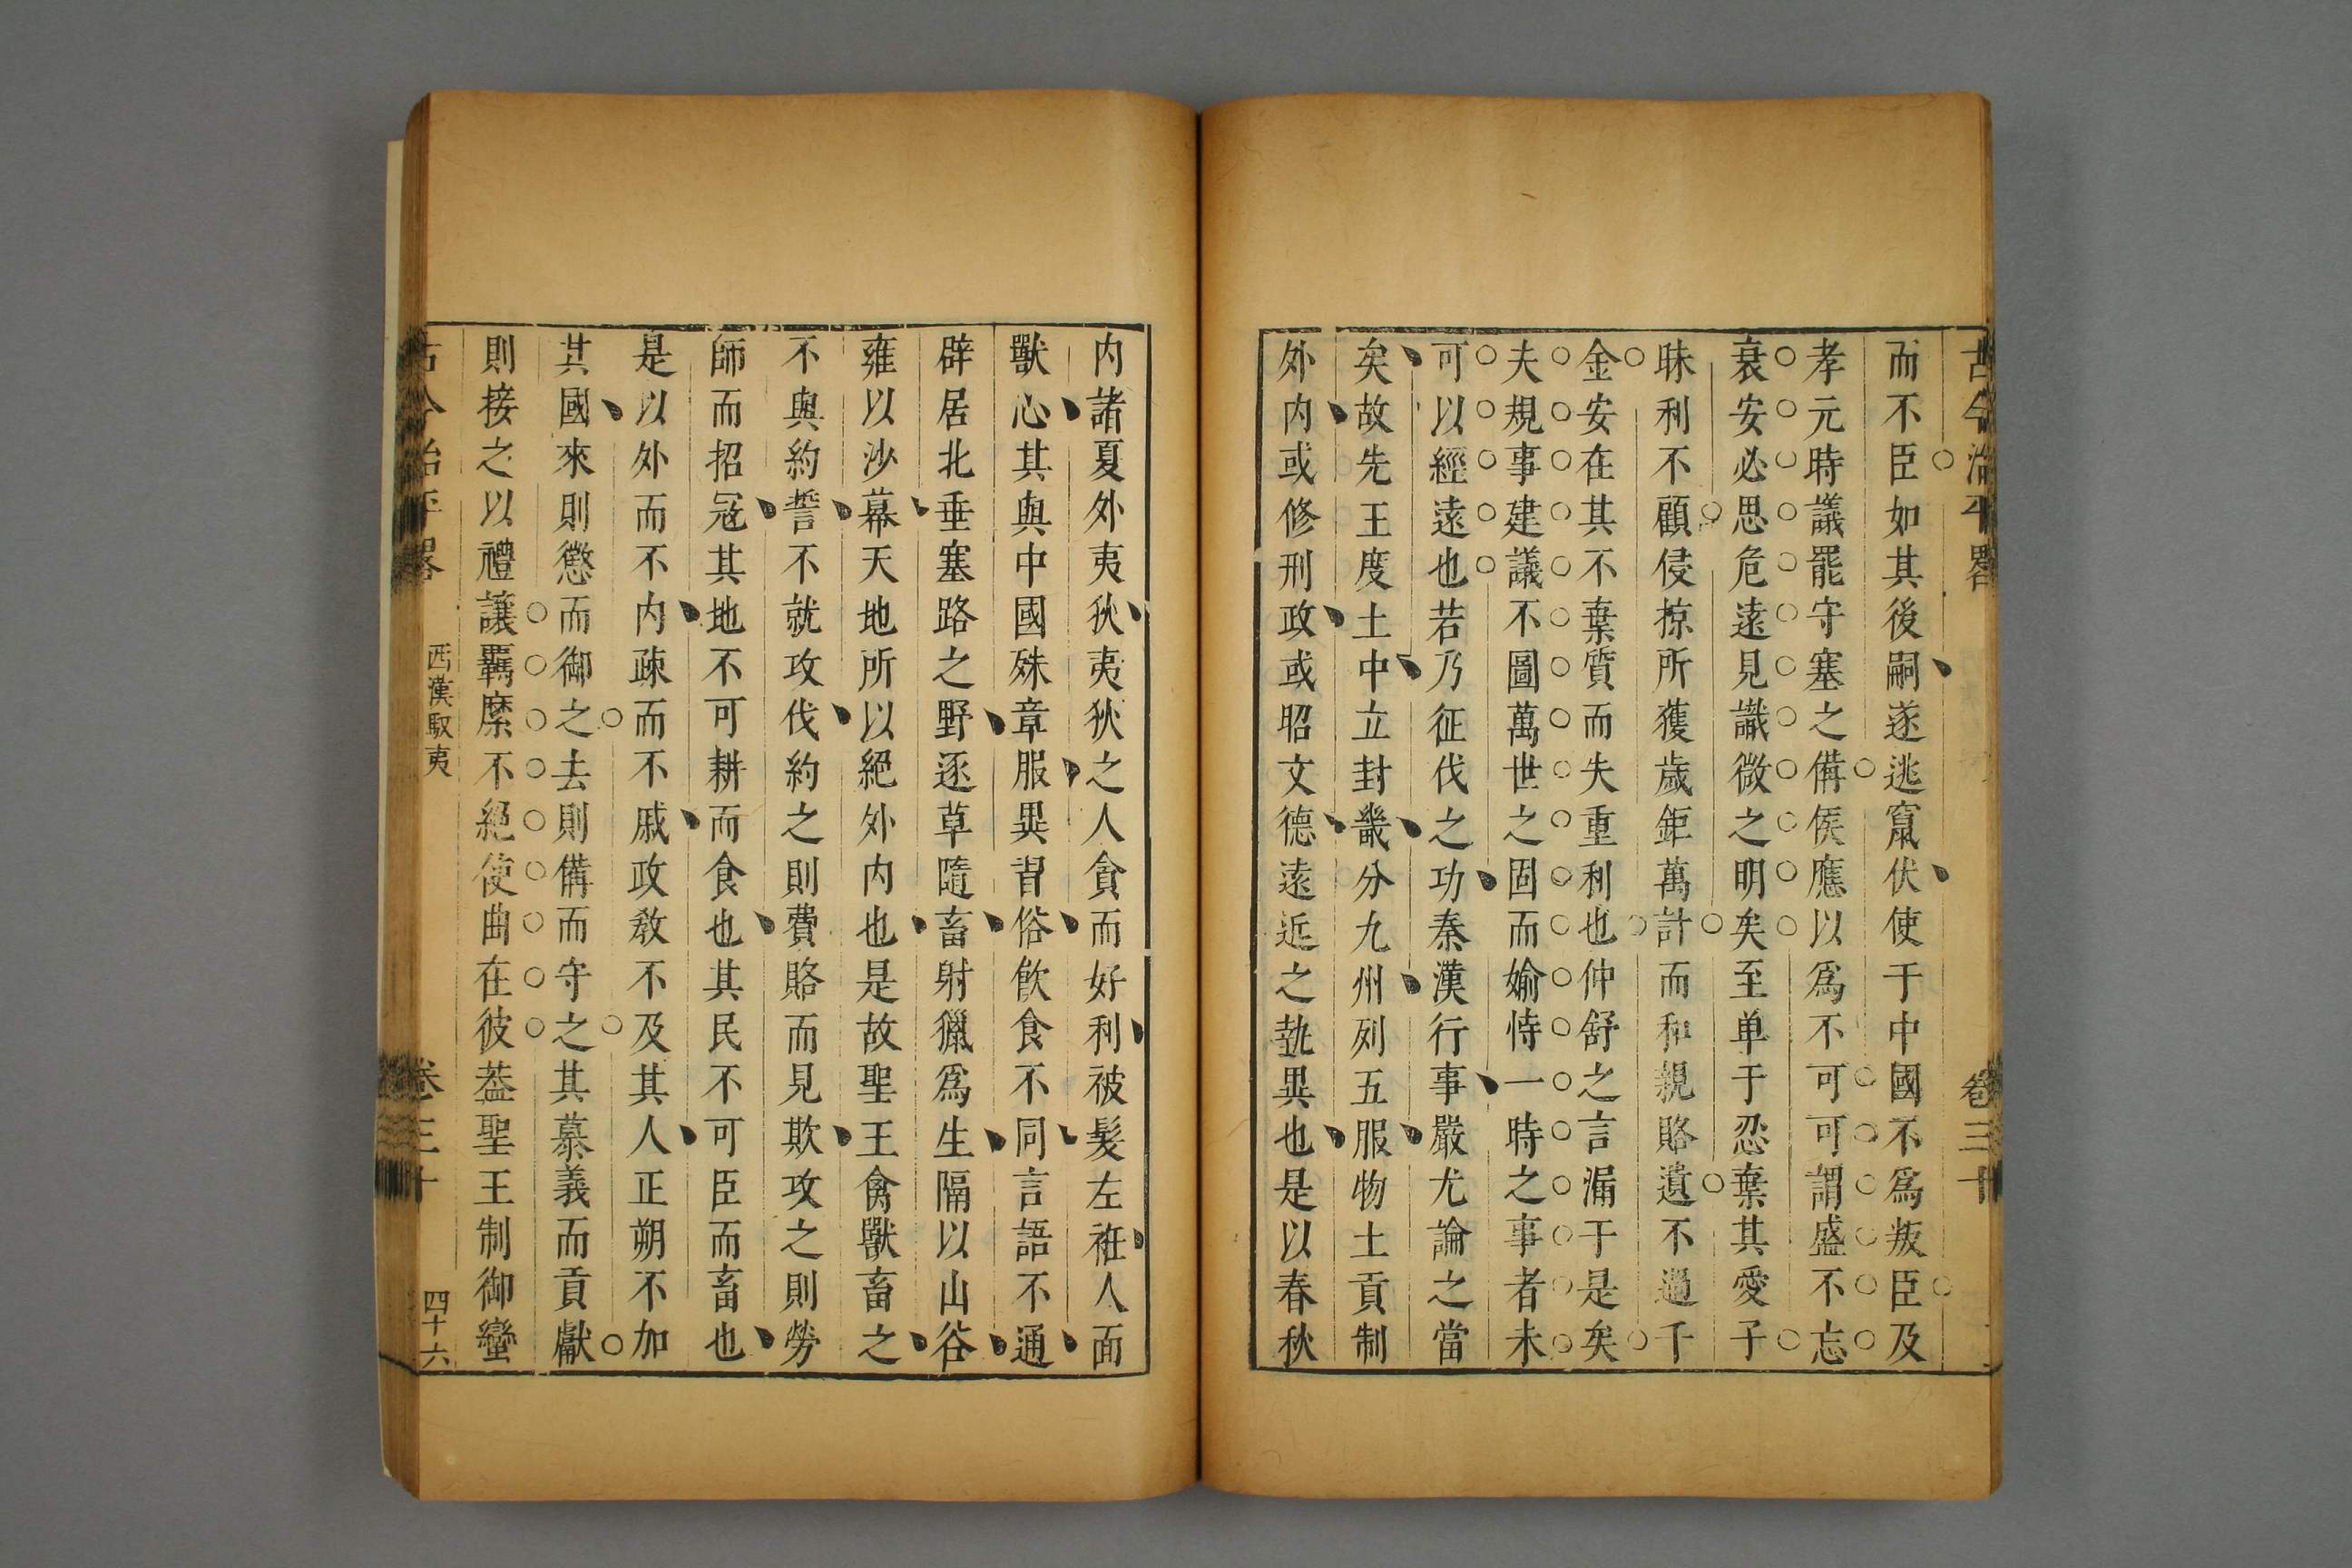 古今治平畧 卷三十
而不臣如其後嗣遂逃竄伏使于中國不爲叛臣及
孝元時議罷守塞之備侯應以爲不可可謂盛不忘
衰安必思危遠見識微之明矣至单于忍棄其愛子
昧利不顧侵掠所獲歲鉅萬計而和親賂遺不過千
金安在其不棄質而失重利也仲舒之言漏于是矣
夫規事建議不圖萬世之固而媮恃一時之事者未
可以經遠也若乃征伐之功秦漢行事嚴尤論之當
矣故先王度土中立封畿分九州列五服物土貢制
外内或修刑政或昭文德遠近之埶異也是以春秋
内諸夏外夷狄夷狄之人貪而好利被髮左袵人面
獸心其與中國殊章服異習俗飲食不同言語不通
辟居北垂塞路之野逐草隨畜射獵爲生隔以山谷
雍以沙幕天地所以絕外内也是故聖王禽獸畜之
不與約誓不就攻伐約之則費賂而見欺攻之則勞
師而招冦其地不可耕而食也其民不可臣而畜也
是以外而不内疎而不戚政教不及其人正朔不加
其國來則懲而御之去則備而守之其慕義而貢獻
則接之以禮讓羈縻不絕使曲在彼葢聖王制御蠻
古今治平畧 西漢馭夷 卷三十 四十六